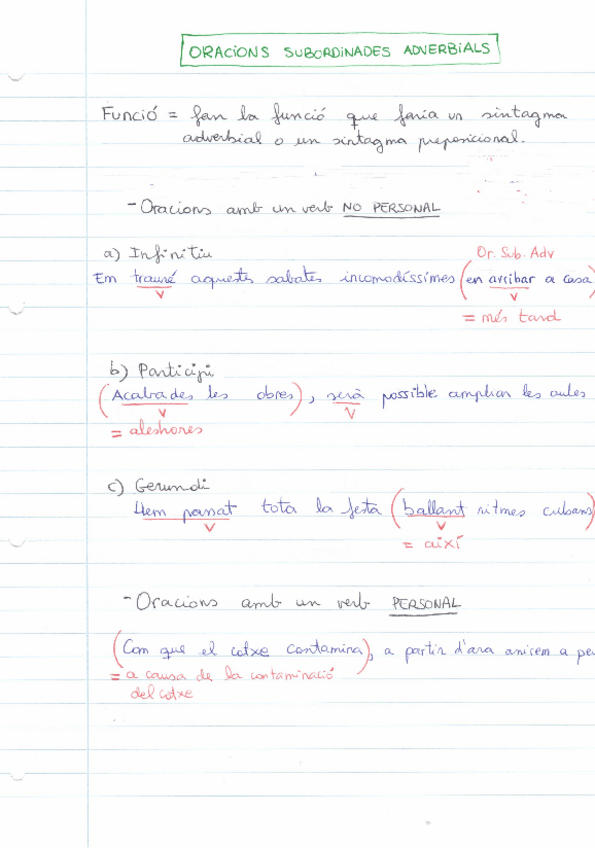 ORACIONS SUBORDINADES ADVERBIALS
Funció = fan la funció que faria un sintagma
adverbial o un sintagma preposicional.
- Oracions amb un verb NO PERSONAL
a) Infinitiu
Or. Sub. Adv
Em trauré aquestes sabates incomodíssimes (en arribar a casa
V V
= més tard
b) Participi
(Acabades les obres), serà possible ampliar les aules
V V
= aleshores
c) Gerundi
Hem passat tota la festa (ballant ritmes cubans)
V V
= així
- Oracions amb un verb PERSONAL
(Com que el cotxe contamina), a partir d'ara anirem a pe
= a causa de la contaminació
del cotxe